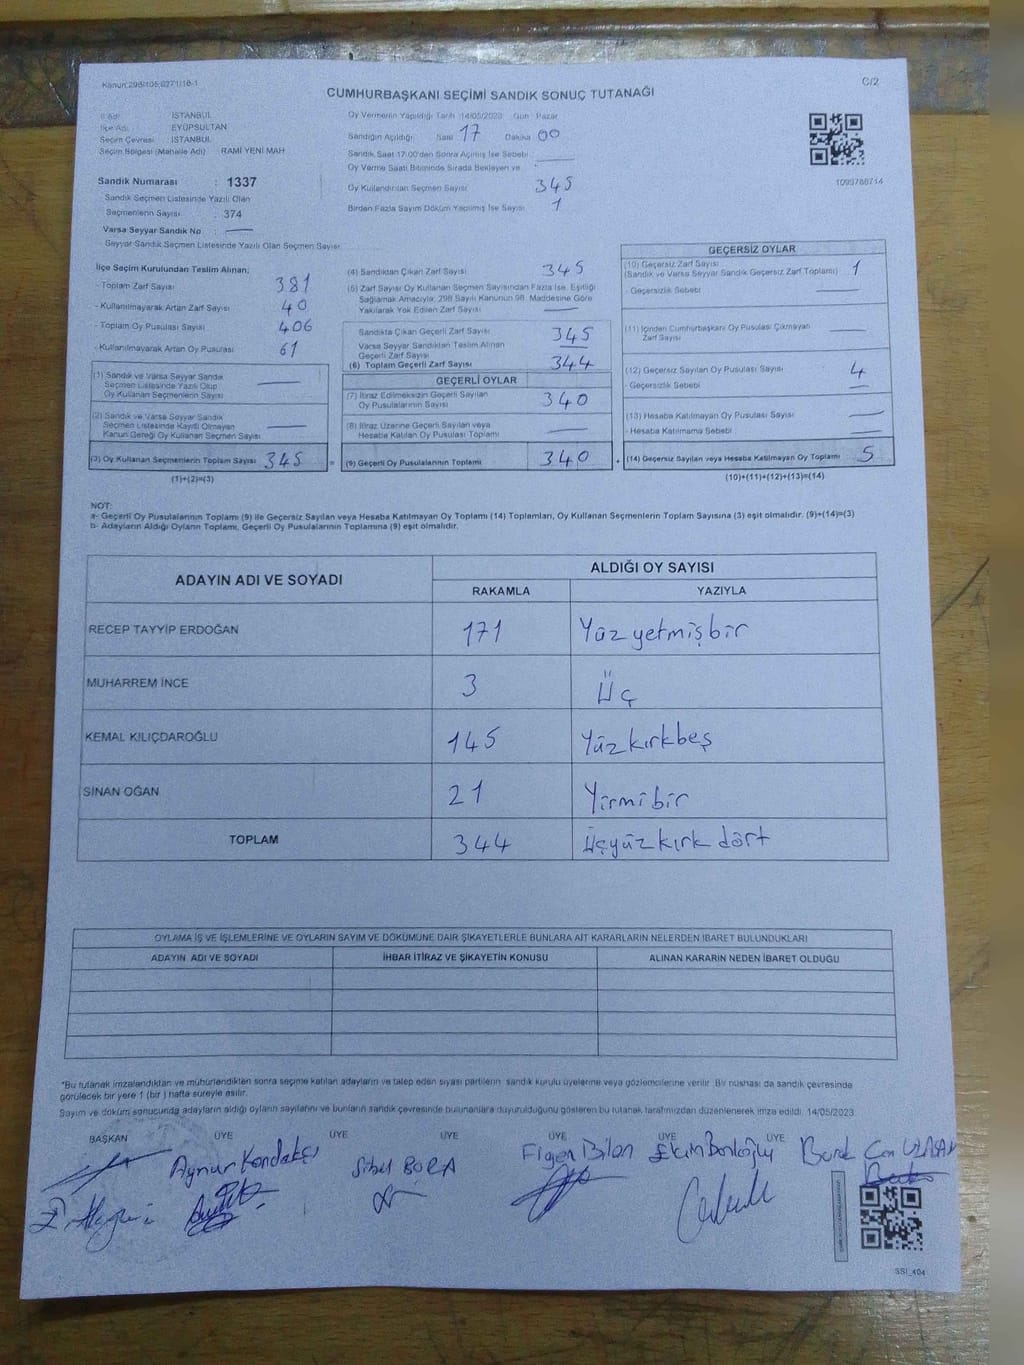 Kanun:298/105,6271/16-1
C/2
CUMHURBAŞKANI SEÇİMİ SANDIK SONUÇ TUTANAĞI
İl Adı : İSTANBUL
İlçe Adı : EYÜPSULTAN
Seçim Çevresi : İSTANBUL
Seçim Bölgesi (Mahalle Adı) : RAMİ YENİ MAH
Sandık Numarası : 1337
Sandık Seçmen Listesinde Yazılı Olan
Seçmenlerin Sayısı : 374
Varsa Seyyar Sandık No :
Seyyar Sandık Seçmen Listesinde Yazılı Olan Seçmen Sayısı:
Oy Vermenin Yapıldığı Tarih :14/05/2023 Gün : Pazar
Sandığın Açıldığı: Saat 17 Dakika 00
Sandık Saat 17:00'den Sonra Açılmış İse Sebebi:
Oy Verme Saati Bitiminde Sırada Bekleyen ve
Oy Kullandırılan Seçmen Sayısı: 345
Birden Fazla Sayım Döküm Yapılmış İse Sayısı: 1
1099788714
İlçe Seçim Kurulundan Teslim Alınan;
- Toplam Zarf Sayısı 381
- Kullanılmayarak Artan Zarf Sayısı 40
- Toplam Oy Pusulası Sayısı 406
- Kullanılmayarak Artan Oy Pusulası 61
(1) Sandık ve Varsa Seyyar Sandık
Seçmen Listesinde Yazılı Olup
Oy Kullanan Seçmenlerin Sayısı
(2) Sandık ve Varsa Seyyar Sandık
Seçmen Listesinde Kaydı Olmayan
Kanun Gereği Oy Kullanan Seçmen Sayısı
(3) Oy Kullanan Seçmenlerin Toplam Sayısı 345
(1)+(2)=(3)
(4) Sandıktan Çıkan Zarf Sayısı 345
(5) Zarf Sayısı Oy Kullanan Seçmen Sayısından Fazla İse, Eşitliği
Sağlamak Amacıyla, 298 Sayılı Kanunun 98. Maddesine Göre
Yakılarak Yok Edilen Zarf Sayısı
Sandıkta Çıkan Geçerli Zarf Sayısı 345
Varsa Seyyar Sandıktan Teslim Alınan
Geçerli Zarf Sayısı
(6) Toplam Geçerli Zarf Sayısı 344
GEÇERLİ OYLAR
(7) İtiraz Edilmeksizin Geçerli Sayılan
Oy Pusulalarının Sayısı 340
(8) İtiraz Üzerine Geçerli Sayılan veya
Hesaba Katılan Oy Pusulası Toplamı
= (9) Geçerli Oy Pusulalarının Toplamı 340
GEÇERSİZ OYLAR
(10) Geçersiz Zarf Sayısı 1
(Sandık ve Varsa Seyyar Sandık Geçersiz Zarf Toplamı)
- Geçersizlik Sebebi :
(11) İçinden Cumhurbaşkanı Oy Pusulası Çıkmayan
Zarf Sayısı
(12) Geçersiz Sayılan Oy Pusulası Sayısı 4
- Geçersizlik Sebebi :
(13) Hesaba Katılmayan Oy Pusulası Sayısı
- Hesaba Katılmama Sebebi :
+ (14) Geçersiz Sayılan veya Hesaba Katılmayan Oy Toplamı 5
(10)+(11)+(12)+(13)=(14)
NOT:
a- Geçerli Oy Pusulalarının Toplamı (9) ile Geçersiz Sayılan veya Hesaba Katılmayan Oy Toplamı (14) Toplamları, Oy Kullanan Seçmenlerin Toplam Sayısına (3) eşit olmalıdır. (9)+(14)=(3)
b- Adayların Aldığı Oyların Toplamı, Geçerli Oy Pusulalarının Toplamına (9) eşit olmalıdır.
ADAYIN ADI VE SOYADI ALDIĞI OY SAYISI
RAKAMLA YAZIYLA
RECEP TAYYİP ERDOĞAN 171 Yüz yetmişbir
MUHARREM İNCE 3 Üç
KEMAL KILIÇDAROĞLU 145 Yüzkırkbeş
SİNAN OĞAN 21 Yirmibir
TOPLAM 344 Üçyüzkırk dört
OYLAMA İŞ VE İŞLEMLERİNE VE OYLARIN SAYIM VE DÖKÜMÜNE DAİR ŞİKAYETLERLE BUNLARA AİT KARARLARIN NELERDEN İBARET BULUNDUKLARI
ADAYIN ADI VE SOYADI İHBAR İTİRAZ VE ŞİKAYETİN KONUSU ALINAN KARARIN NEDEN İBARET OLDUĞU
*Bu tutanak imzalandıktan ve mühürlendikten sonra seçime katılan adayların ve talep eden siyasi partilerin sandık kurulu üyelerine veya gözlemcilerine verilir. Bir nüshası da sandık çevresinde
görülecek bir yere 1 (bir) hafta süreyle asılır.
Sayım ve döküm sonucunda adayların aldığı oyların sayılarını ve bunların sandık çevresinde bulunanlara duyurulduğunu gösteren bu tutanak tarafımızdan düzenlenerek imza edildi. 14/05/2023
BAŞKAN ÜYE ÜYE ÜYE ÜYE ÜYE ÜYE
Aynur Kondakçı Sibel BORA Figen Bilan Burak Can
SSİ_404